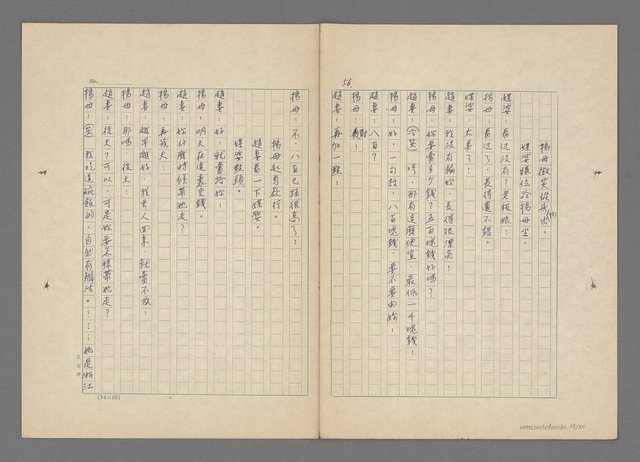 56
楊母微笑從內出。
媒婆讓位給楊母坐。
媒婆：看过沒有？老板娘！
楊母：看过了，長得還不錯。
媒婆：太美了！
趙妻：我沒有騙妳，長得很漂亮！
楊母：妳要賣多少錢？五百塊錢好嗎？
趙妻：(冷笑)哼！那有這麼便宜，最低一千塊錢！
楊母：好，一句話，八百塊錢，要不要由妳！
趙妻：八百？
楊母：
趙妻：再加一點！
No.
楊母：不，八百已經很高了！
楊母起身欲行。
趙妻看一下媒婆。
媒婆點頭。
趙妻：好，就賣給妳！
楊母：明天在這裏交錢。
趙妻：妳什麼時候帶她走？
楊母：再後天！
趙妻：越早越好，我男人回來，就賣不成！
楊母：那嗎，後天！
趙妻：後天？可以，可是妳要怎樣帶她走？
楊母：(笑)我吃這碗飯的，自然有辦法。⋯⋯她是浙江
(24×25)